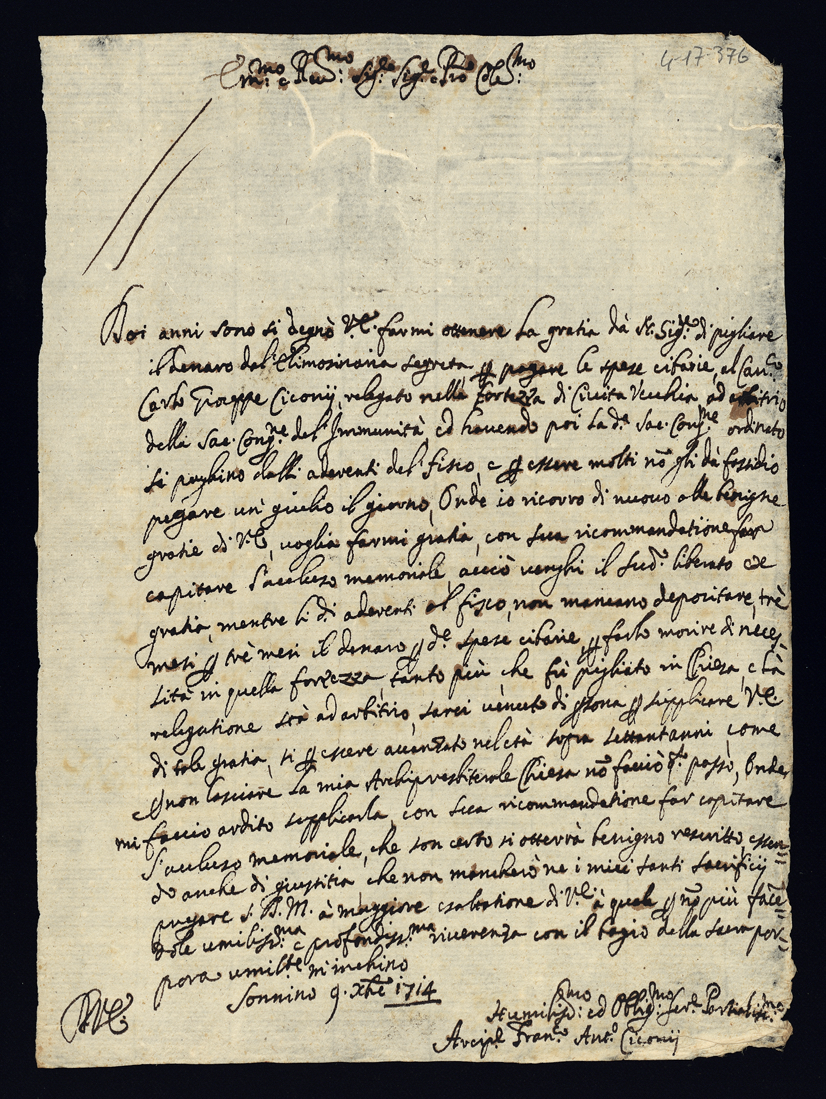 4-17-376
Em:mo e Reu:mo Sig.re Sig.re e Pro Col:mo
Doi anni sono si degnò V.E. farmi ottenere la gratia dà N. Sig.re di pigliare
il denaro dal'Elimosinaria segreta p pagare le spese cibarie, al Can.co
Carlo Gioseppe Ciconij, relegato nella fortezza di Civita Vecchia, ad arbitrio
della Sac. Cong.ne del'Immunità, ed havendo poi la d.a Sac. Cong.ne ordinato
si paghino dalli aderenti del fisco, e p essere molti nõ gli dà fastidio
pagare un giulio il giorno, Onde io ricorro di nuovo alle benigne
gratie di V.E., voglia farmi gratia, con sua ricommandatione far
capitare l'accluso memoriale, acciò venghi il sud.o liberato ex
gratia, mentre li d.i aderenti al fisco, non mancano depositare, trè
mesi p trè mesi il denaro p d.e spese cibarie, p farlo morire di neces-
sità in quella fortezza, tanto più che fù pigliato in Chiesa, e la
relegatione stà ad arbitrio, sarei venuto di psona p supplicare V.E.
di tale gratia, si p essere avanzato nel età sopra settant'anni, come
p non lasciare la mia Archipresbiterale Chiesa nõ facciò q.to passo, Onde
mi faccio ardito supplicarla, con sua ricommandatione far capitare
l'accluso memoriale, che son certo si otterrà benigno rescritto, essen=
do anche di giustitia che non mancherò ne i miei santi sacrificij
pregare S.D.M. à maggiore esaltatione di V.E. à quale p nõ più facen=
dole umiliss.ma e profondiss:ma riverenza con il bagio della sacra por=
pora umilte m'inchino
Sonnino 9. Xbre 1714
D.V.E.
Humiliss:mo ed Oblig:mo Ser.e Partialiss:mo
Arcip.e Fran.co Ant.o Ciconij